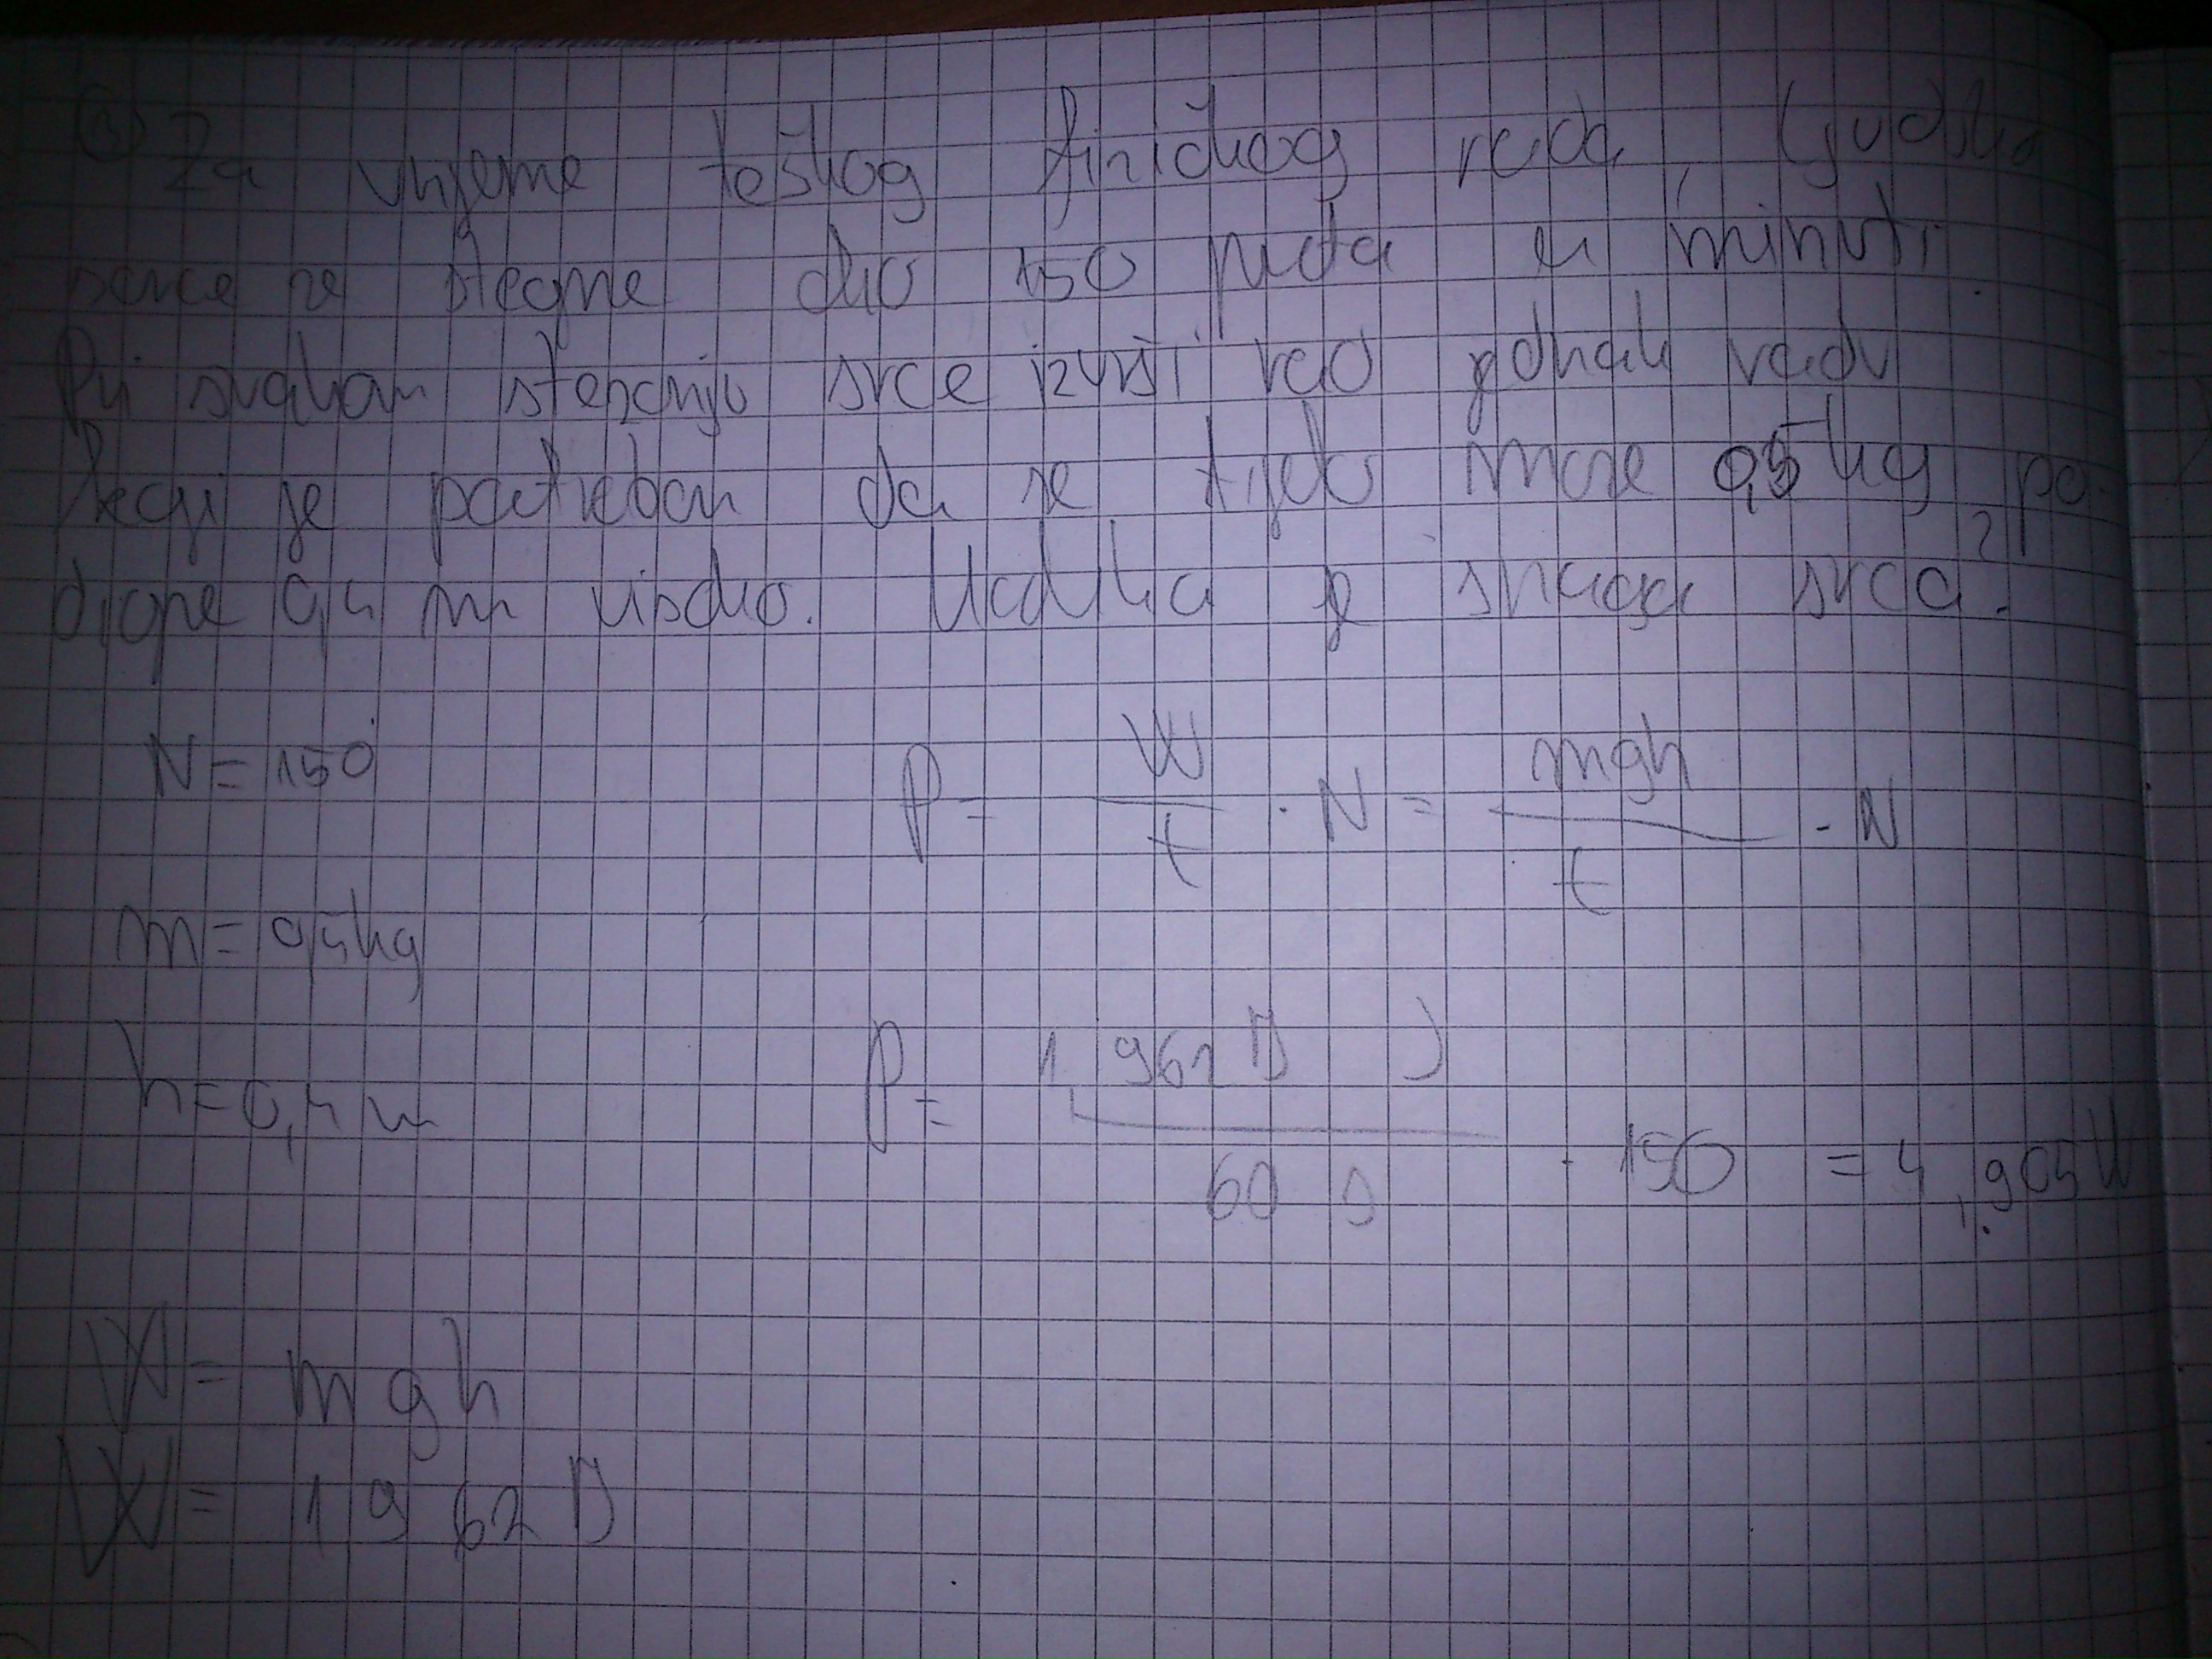 Za vrijeme teškog fizičkog rada, ljudsko
srce se stegne oko 150 puta u minuti.
Pri svakom stezanju srce izvrši rad jednak radu
koji je potreban da se tijelo mase 0,5 kg po-
digne 0,4 m visoko. Kolika je snaga srca?
N = 150 P = W / t · N = mgh / t · N
m = 0,5 kg
h = 0,4 m P = 1,962 J / 60 s · 150 = 4,905 W
W = mgh
W = 1,962 J